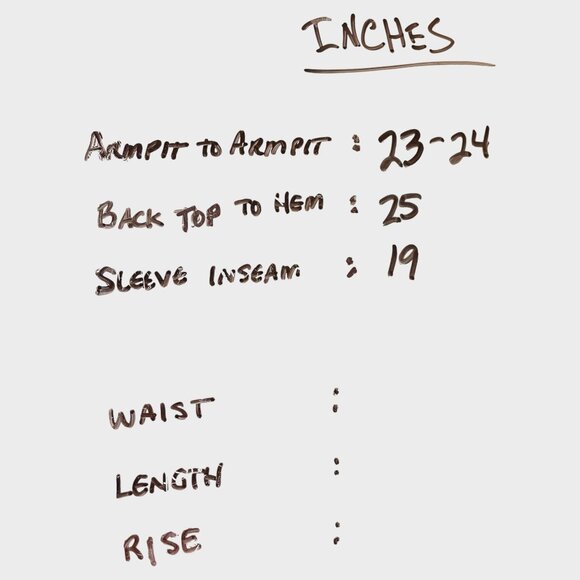 INCHES
ARMPIT TO ARMPIT : 23-24
BACK TOP TO HEM : 25
SLEEVE INSEAM : 19
WAIST :
LENGTH :
RISE :